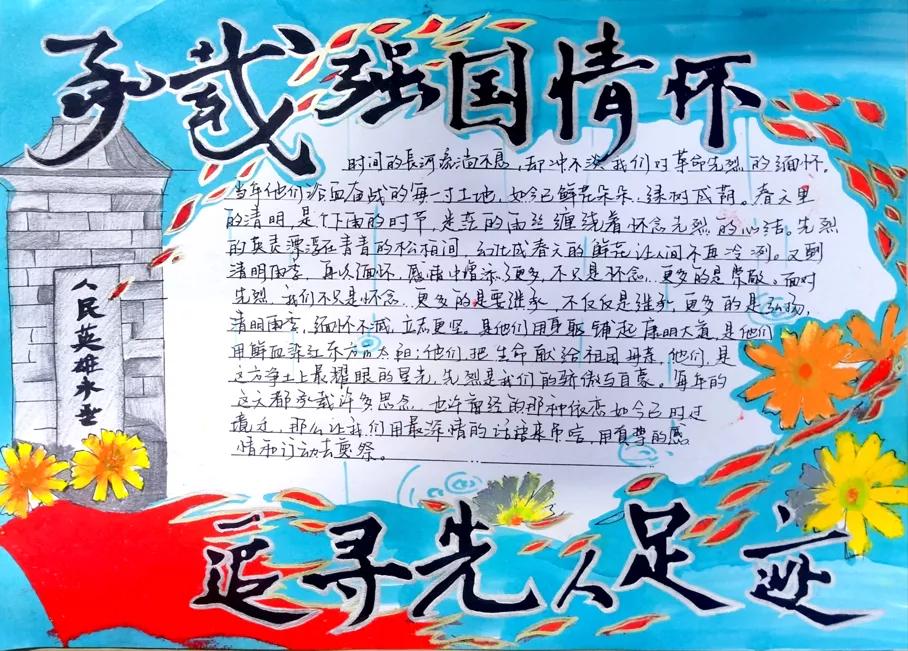 承载强国情怀
时间的長河流淌不息,却冲不淡我们对革命先烈的缅怀。
当年他们浴血奋战的每一寸土地,如今已鲜花朵朵,绿树成荫。春天里
的清明,是个下雨的时节,是谁的雨丝缠绕着怀念先烈的心结。先烈
的英灵漂浮在青青的松柏间,幻化成春天的鲜花让人间不再冷冽。又到
清明雨季,再次缅怀,感情中增添了更多,不只是怀念,更多的是崇敬。面对
先烈,我们不只是怀念,更多的是要继承,不仅仅是继承,更多的是弘扬,
清明雨季,缅怀不减,立志更坚。是他们用身躯铺起康明大道,是他们
用鲜血染红东方的太阳;他们把生命献给祖国母亲,他们,是
这方净土上最耀眼的星光,先烈是我们的骄傲与自豪。每年的
这天都承载许多思念,也许曾经的那种依恋如今已时过
境迁,那么让我们用最深情的话语来吊唁,用真挚的感
情和行动去奠祭。
人民英雄永垂
追寻先人足迹